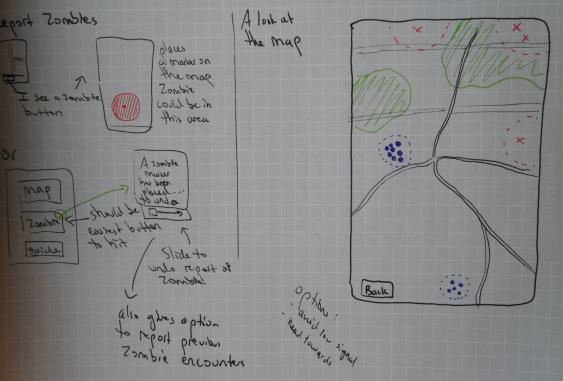 Report Zombies
I see a zombie
button
places
a marker on
the map
Zombie
could be in
this area
or
map
Zombie
guide
should be
easiest button
to hit
A zombie
marker
has been
placed....
to undo
Slide to
undo report of
Zombie!
also gives option
to report previous
Zombie encounters
A look at
the map
Back
options:
- avoid low signal
- head towards